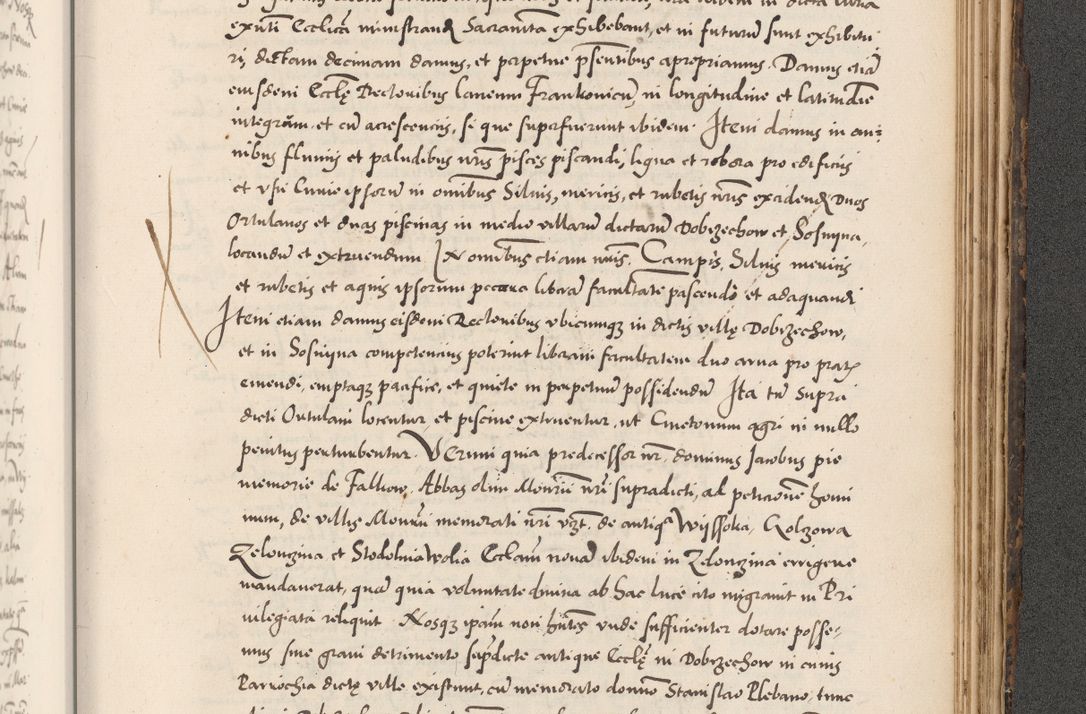 exnti Ecclīca ministrand Sacramta exhibebant, et in futurū sunt exhibitu
ri, dictam decimam damus, et perpetue pn̄sentibus apropriamus. Damus etiā
eiusdem Ecclę Rectoribus laneum Frankonicū, in longitudine et latitudine
integrum, et cū acrescenciis, si que superfuerunt ibidem. Item damus in om=
nibus fluviis et paludibus nr̄is pisces piscandi, ligna et robora pro edificiis
et usu Curie ipsorū in omibus Siluis, mericis, et rubetis nr̄is excidend Duos
Ortulanos et duas piscinas in medio villarū dictarū Dobrzechow et Sosnyna,
locandū et extruendum. In omībus etiam nr̄is Campis, Siluis mericis
et rubetis et aquis ipsorum pecora liberā facultate pascendi et adaquandi
Item etiam damus eisdem Rectoribus ubicunqz in dictis villę Dobrzechow,
et in Sosnyna competencius poterint liberam facultatem duo arua pro prat
emendi, emptaqz pacifice, et quiete in perpetuū possidendū Ita tn̄ supra
dicti Ortulani locentur, et piscine extruentur, ut Cmetonum agri in nullo
penitus perturbentur. Verum quia predecessor nr̄, dominus Jacobus pie
memorie de Falkow, Abbas olim Monrīi nr̄i supradicti, ad peticionē homi
num, de villis Monrii memorati nr̄i vzt, de antiqa Wyssoka, Golzowa
Zelonczina et Stodolnia Wolia Ecclām nouā ibidem in Zelonczina errigere
mandauerat, quā quia voluntate diuina ab hac luce cito migrauit in Pri
uilegiata reliquit. Nosqz ipām non hn̄tes unde sufficienter dotare posse=
mus sine graui detrimento supdicte antique Ecclę in Dobrzechow in cuius
Parrochia dictę ville existunt, cū memorato donno Stanislao Plebano, tunc